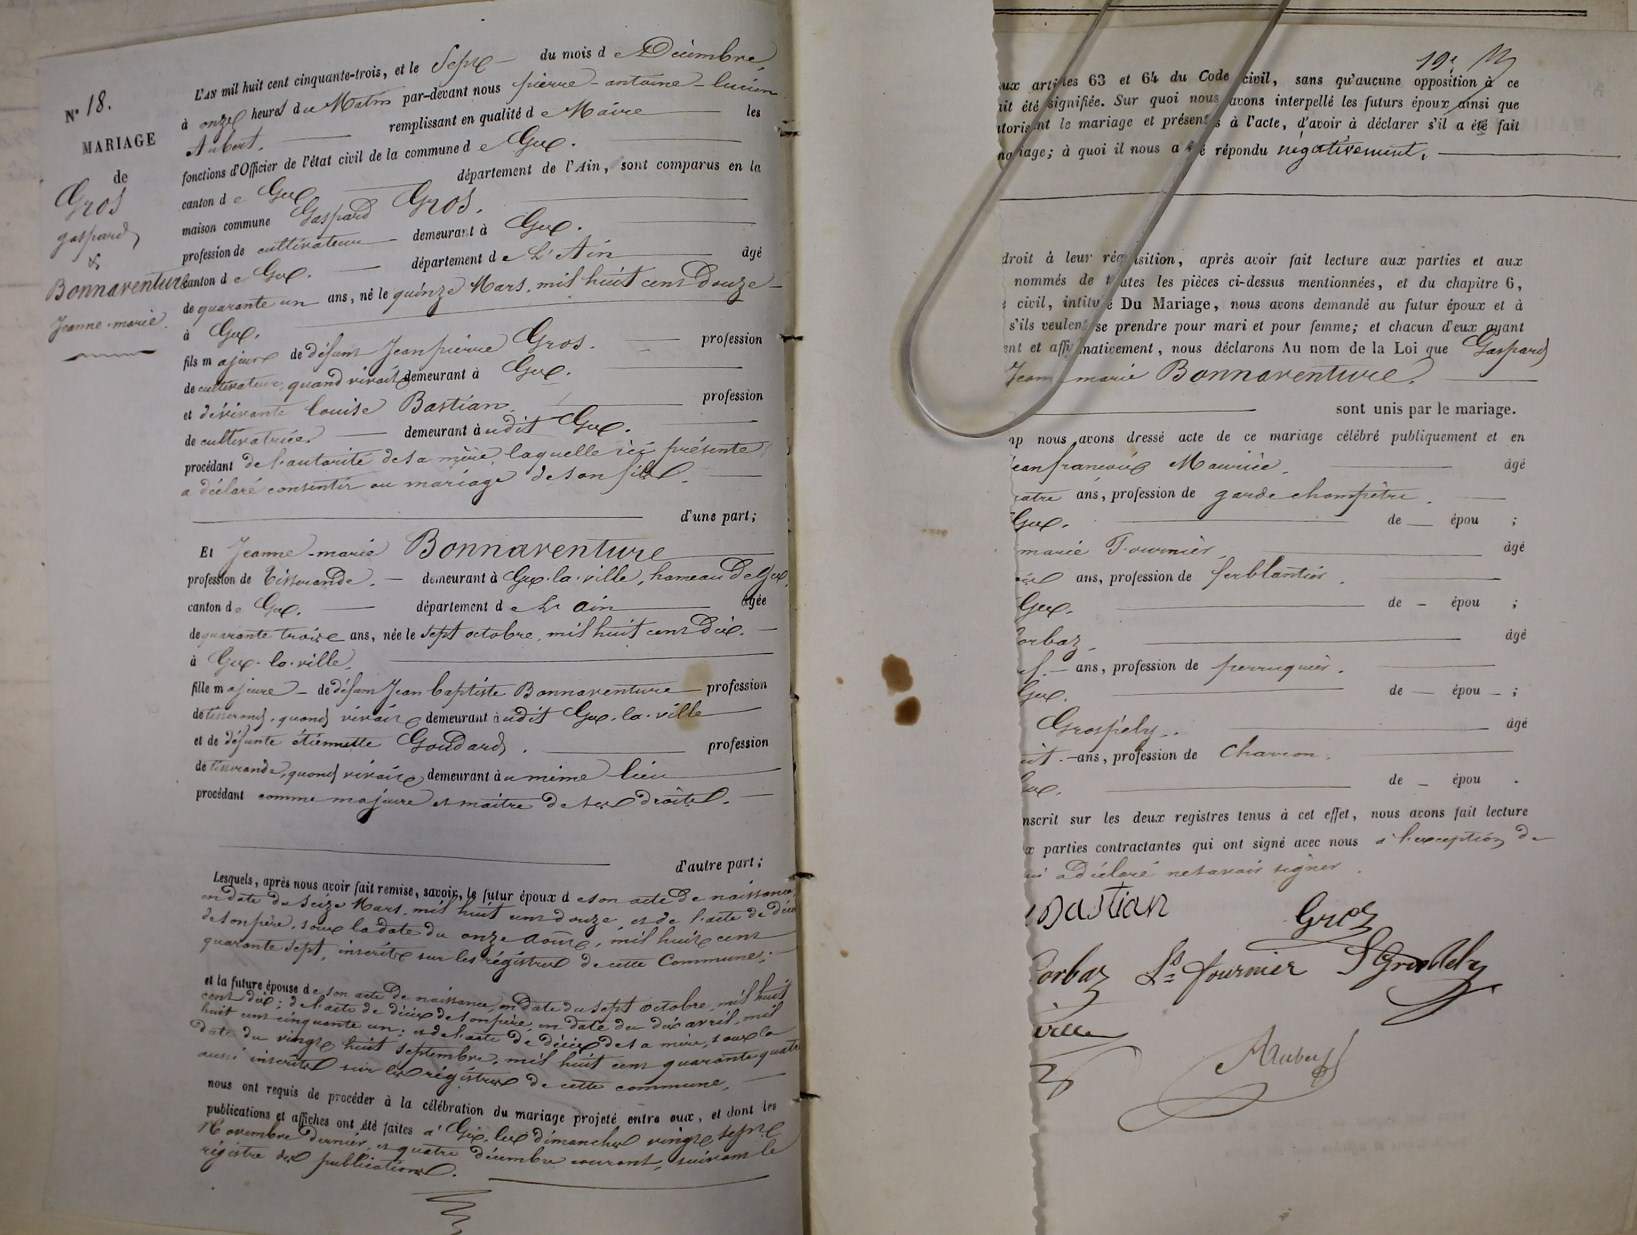 N° 18.
MARIAGE
de
Gros
gaspard
&
Bonnaventure
Jeanne-marie.
L'AN mil huit cent cinquante-trois, et le Sept du mois de Décembre,
à onze heures du Matin par-devant nous pierre-antoine-lucien
Aubert. remplissant en qualité de Maire les
fonctions d'Officier de l'état civil de la commune de Gex.
canton de Gex département de l'Ain, sont comparus en la
maison commune Gaspard Gros.
profession de cultivateur demeurant à Gex.
canton de Gex. département de L'Ain âgé
de quarante un ans, né le quinze Mars, mil huit cent douze
à Gex.
fils majeur de défunt Jean pierre Gros. profession
de cultivateur, quand vivait demeurant à Gex.
et de vivante louise Bastian. profession
de cultivatrice demeurant audit Gex.
procédant de l'autorité de sa mère, laquelle ici présente
a déclaré consentir au mariage de son fils.
d'une part;
Et Jeanne-marie Bonnaventure
profession de tisserande. demeurant à Gex-la-ville, hameau de Gex,
canton de Gex. département de L'ain âgée
de quarante trois ans, née le sept octobre, mil huit cent dix.
à Gex-la-ville.
fille majeure de défunt Jean baptiste Bonnaventure profession
de tisserand, quand vivait demeurant audit Gex-la-ville
et de défunte étiennette Goudard. profession
de tisserande, quand vivait demeurant au même lieu
procédant comme majeure et maître de ses droits.
d'autre part;
Lesquels, après nous avoir fait remise, savoir, le futur époux de son acte de naissance
en date du Seize Mars, mil huit cent douze, et de l'acte de décès
de son père, sous la date du onze août, mil huit cent
quarante sept, inscrits sur les régistres de cette Commune;
et la future épouse de son acte de naissance, en date du sept octobre, mil huit
cent dix; de l'acte de décès de son père, en date du dix avril, mil
huit cent cinquante un; et de l'acte de décès de sa mère, sous la
date du vingt huit septembre, mil huit cent quarante quatre
aussi inscrits sur les régistres de cette commune,
nous ont requis de procéder à la célébration du mariage projeté entre eux, et dont les
publications et affiches ont été faites à Gex, les dimanches vingt sept
Novembre dernier, et quatre décembre courant, suivant le
régistre des publications.
aux articles 63 et 64 du Code civil, sans qu'aucune opposition à ce
ait été signifiée. Sur quoi nous avons interpellé les futurs époux ainsi que
autorisant le mariage et présents à l'acte, d'avoir à déclarer s'il a été fait
mariage; à quoi il nous a été répondu négativement.
droit à leur réquisition, après avoir fait lecture aux parties et aux
nommés de toutes les pièces ci-dessus mentionnées, et du chapitre 6,
civil, intitulé Du Mariage, nous avons demandé au futur époux et à
s'ils veulent se prendre pour mari et pour femme; et chacun d'eux ayant
ent et affirmativement, nous déclarons Au nom de la Loi que Gaspard
Jeanne-marie Bonnaventure.
sont unis par le mariage.
nous avons dressé acte de ce mariage célébré publiquement et en
jean françois Mauriie. âgé
quatre ans, profession de garde champêtre.
Gex. de — épou ;
marie Fournier. âgé
ans, profession de ferblantier.
Gex. de – épou ;
Corbaz. âgé
ans, profession de perruquier.
Gex. de — épou – ;
Grospély. âgé
ans, profession de charron.
Gex. de – épou .
inscrit sur les deux registres tenus à cet effet, nous avons fait lecture
parties contractantes qui ont signé avec nous à l'exception de
qui a déclaré ne savoir signer.
Bastian Gros
Corbaz fournier
Aubert